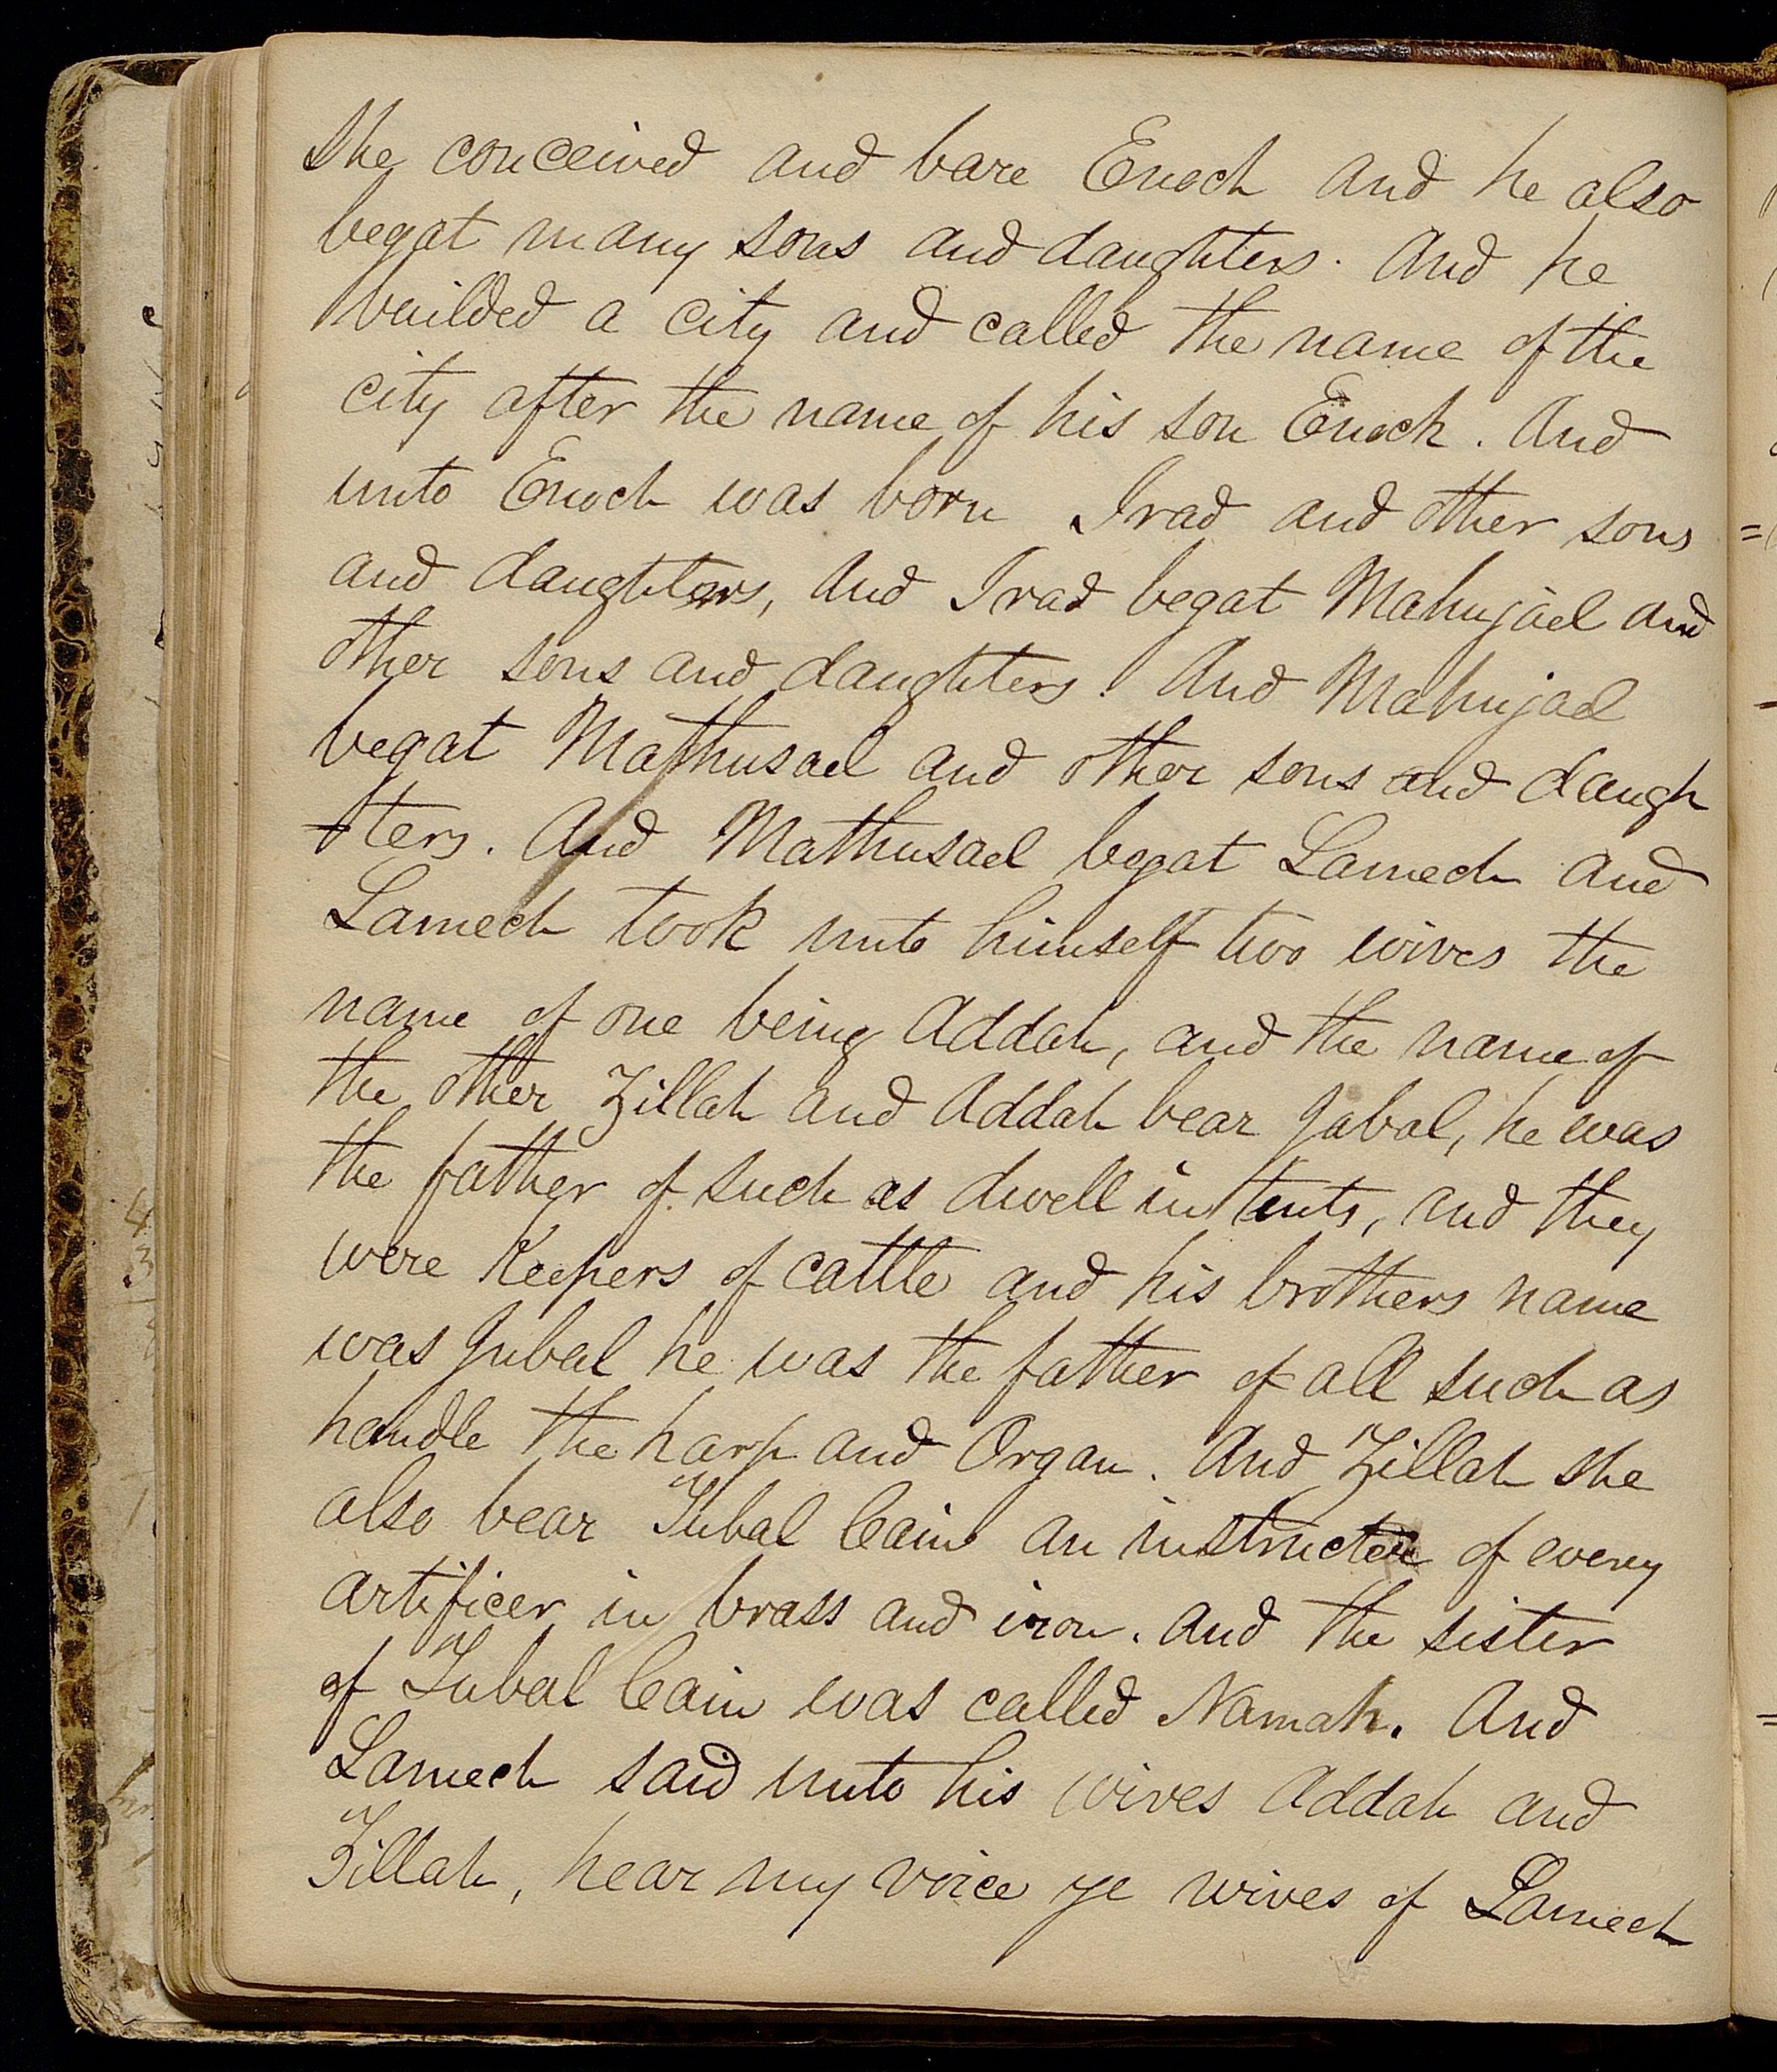 She conceived and bare Enoch and he also
begat many sons and daughters. And he
builded a city and called the name of the
city after the name of his son Enoch. And
unto Enoch was born Irad and other sons
and daughters, And Irad begat Mahujael and
other sons and daughters. And Mahujael
begat Mathusael and other sons and daugh
ters. And Mathusael begat Lamech and
Lamech took unto himself two wives the
name of one being Addah, and the name of
the other Zillah and Addah bear Jabal, he was
the father of such as dwell in tents, and they
were Keepers of cattle and his brothers name
was Jubal he was the father of all such as
handle the harp and Organ. And Zillah she
also bear Tubal Cain an instructer of every
artificer in brass and iron. and the sister
of Tubal Cain was called Namah. And
Lamech said unto his wives Addah and
Zillah, hear my voice ye wives of Lamech